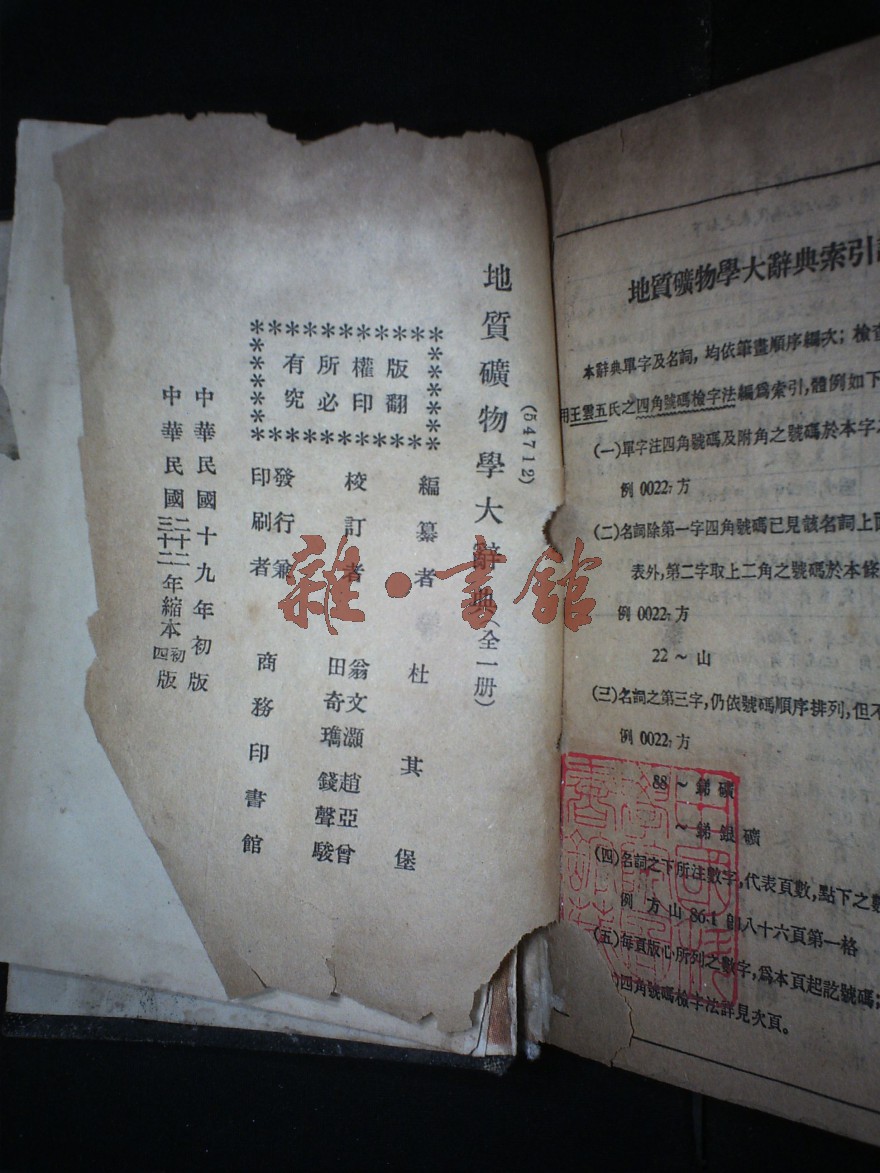 (54712)
地質礦物學大辭典(全一册)
版權所有
翻印必究
編纂者 杜其堡
校訂者 翁文灝 趙亞曾 田奇㻪 錢聲駿
發行兼印刷者 商務印書館
中華民國十九年初版
中華民國二十二年縮本初版
三十二 四
雜·書館
地質礦物學大辭典索引
本辭典單字及名詞,均依筆畫順序編次;檢
用王雲五氏之四角號碼檢字法編爲索引,體例如下
(一)單字注四角號碼及附角之號碼於本字
例 0022₇ 方
(二)名詞除第一字四角號碼已見該名詞上
表外,第二字取上二角之號碼於本條
例 0022₇ 方
22～山
(三)名詞之第三字,仍依號碼順序排列,但
例 0022₇ 方
88～銻礦
～銻銀礦
(四)名詞之下所注數字,代表頁數,點下之
例 方山 86.1 卽八十六頁第一格
(五)每頁版心所列之數字,爲本頁起訖號碼;
四角號碼檢字法詳見次頁。